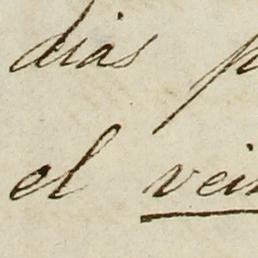 dias p
el vei